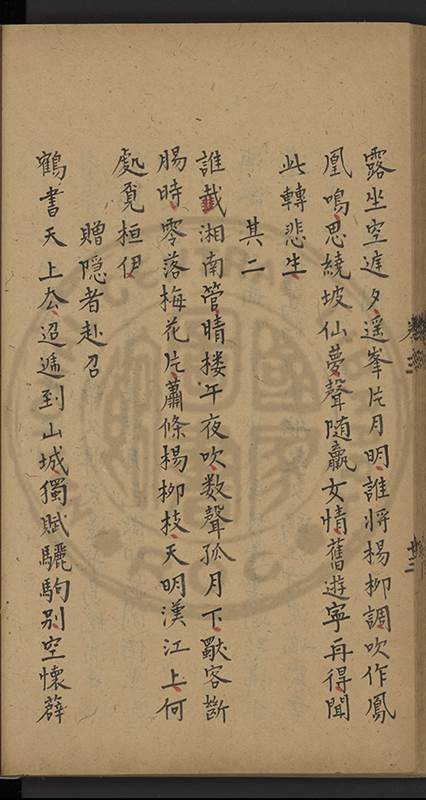 露坐空庭夕遥峯片月明誰將楊柳調吹作鳳
凰鳴思繞坡仙夢聲随嬴女情舊遊寧再得聞
此轉悲生
其二
誰截湘南管晴楼午夜吹数聲孤月下歇客斷
腸時零落梅花片蕭條楊柳枝天明漢江上何
處覓桓伊
贈隐者赴召
鶴書天上公迢遞到山城獨賦驪駒别空懷薜